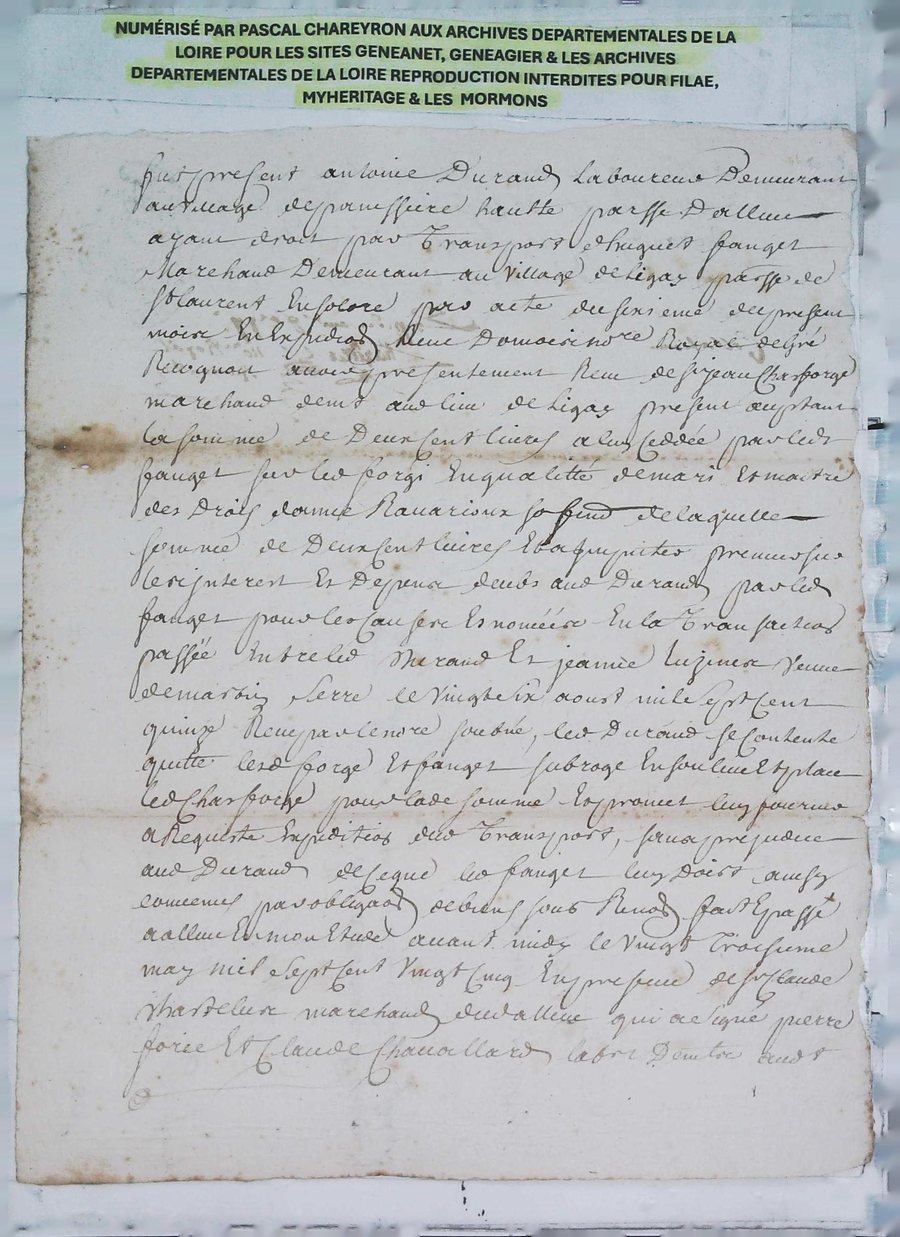 NUMÉRISÉ PAR PASCAL CHAREYRON AUX ARCHIVES DEPARTEMENTALES DE LA
LOIRE POUR LES SITES GENEANET, GENEAGIER & LES ARCHIVES
DEPARTEMENTALES DE LA LOIRE REPRODUCTION INTERDITES POUR FILAE,
MYHERITAGE & LES MORMONS
fut present antoine Durand Laboureur Demeurant
au village de panissiere hautte parsse Dallieu
ayant droit par Transport huguet fanget
Marchand Demeurant au village de Ligay parsse de
St Laurent En solore par acte du sixieme du present
mois Royal de gré
Recognoit avoir presentement Receu de sr jean Chasforge
marchand demt aud lieu de Ligay present acceptant
la somme de Deux cent livres a luy ceddée par led
fanget sur led forgi En qualitté de mari Et maitre
des Droits danne de laquelle
somme de Deux cent livres
interest Et Depens deubs aud Durand par led
fanget pour les causes Enoncées En la Transaction
passée Entre led Et jeanne veuve
de martin Serre le vingt six aoust mil sept cent
quinze Receu par le nore soubné, led Durand se Contente
quitte lesd forge Et fanget subroge En son lieu Et place
led Chasforge pour lade somme Et promet luy fournir
a Requeste Expedition dud Transport, sans prejudice
aud Durand de ce que led fanget luy Doict aussy
par obligaon de biens sous Renon fait Et passé
a allieu En mon Etude avant midy le vingt Troisieme
may mil sept cent vingt cinq En presence de sr Claude
marchand dud allieu qui a signé pierre
forie Et Claude Chavallard labrs